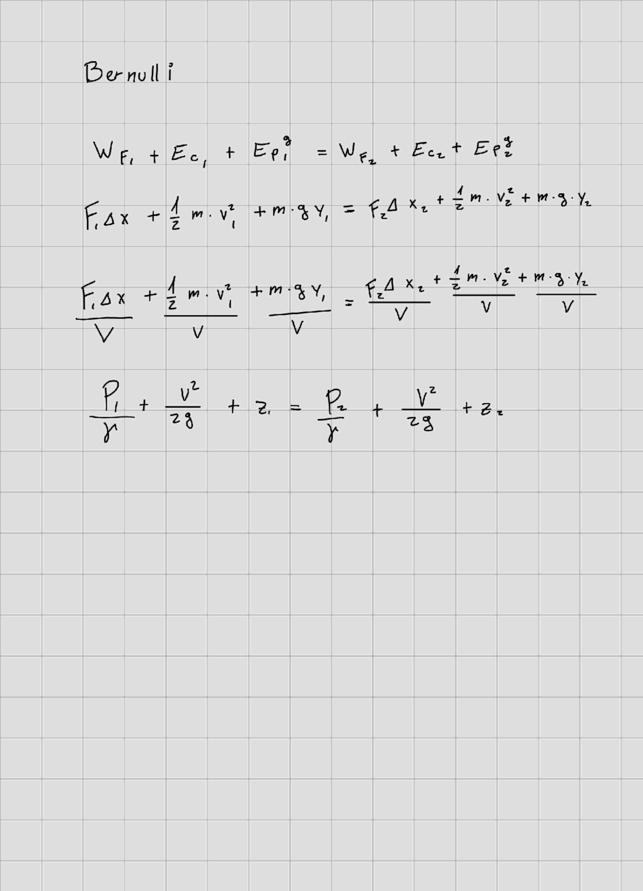 Bernulli
W_F₁ + E_c₁ + E_p₁^g = W_F₂ + E_c₂ + E_p₂^g
F₁Δx + 1/2 m·v₁² + m·g y₁ = F₂Δx₂ + 1/2 m·v₂² + m·g·y₂
F₁Δx/V + 1/2 m·v₁²/V + m·g y₁/V = F₂Δx₂/V + 1/2 m·v₂²/V + m·g·y₂/V
P₁/γ + v²/2g + z₁ = P₂/γ + v²/2g + z₂